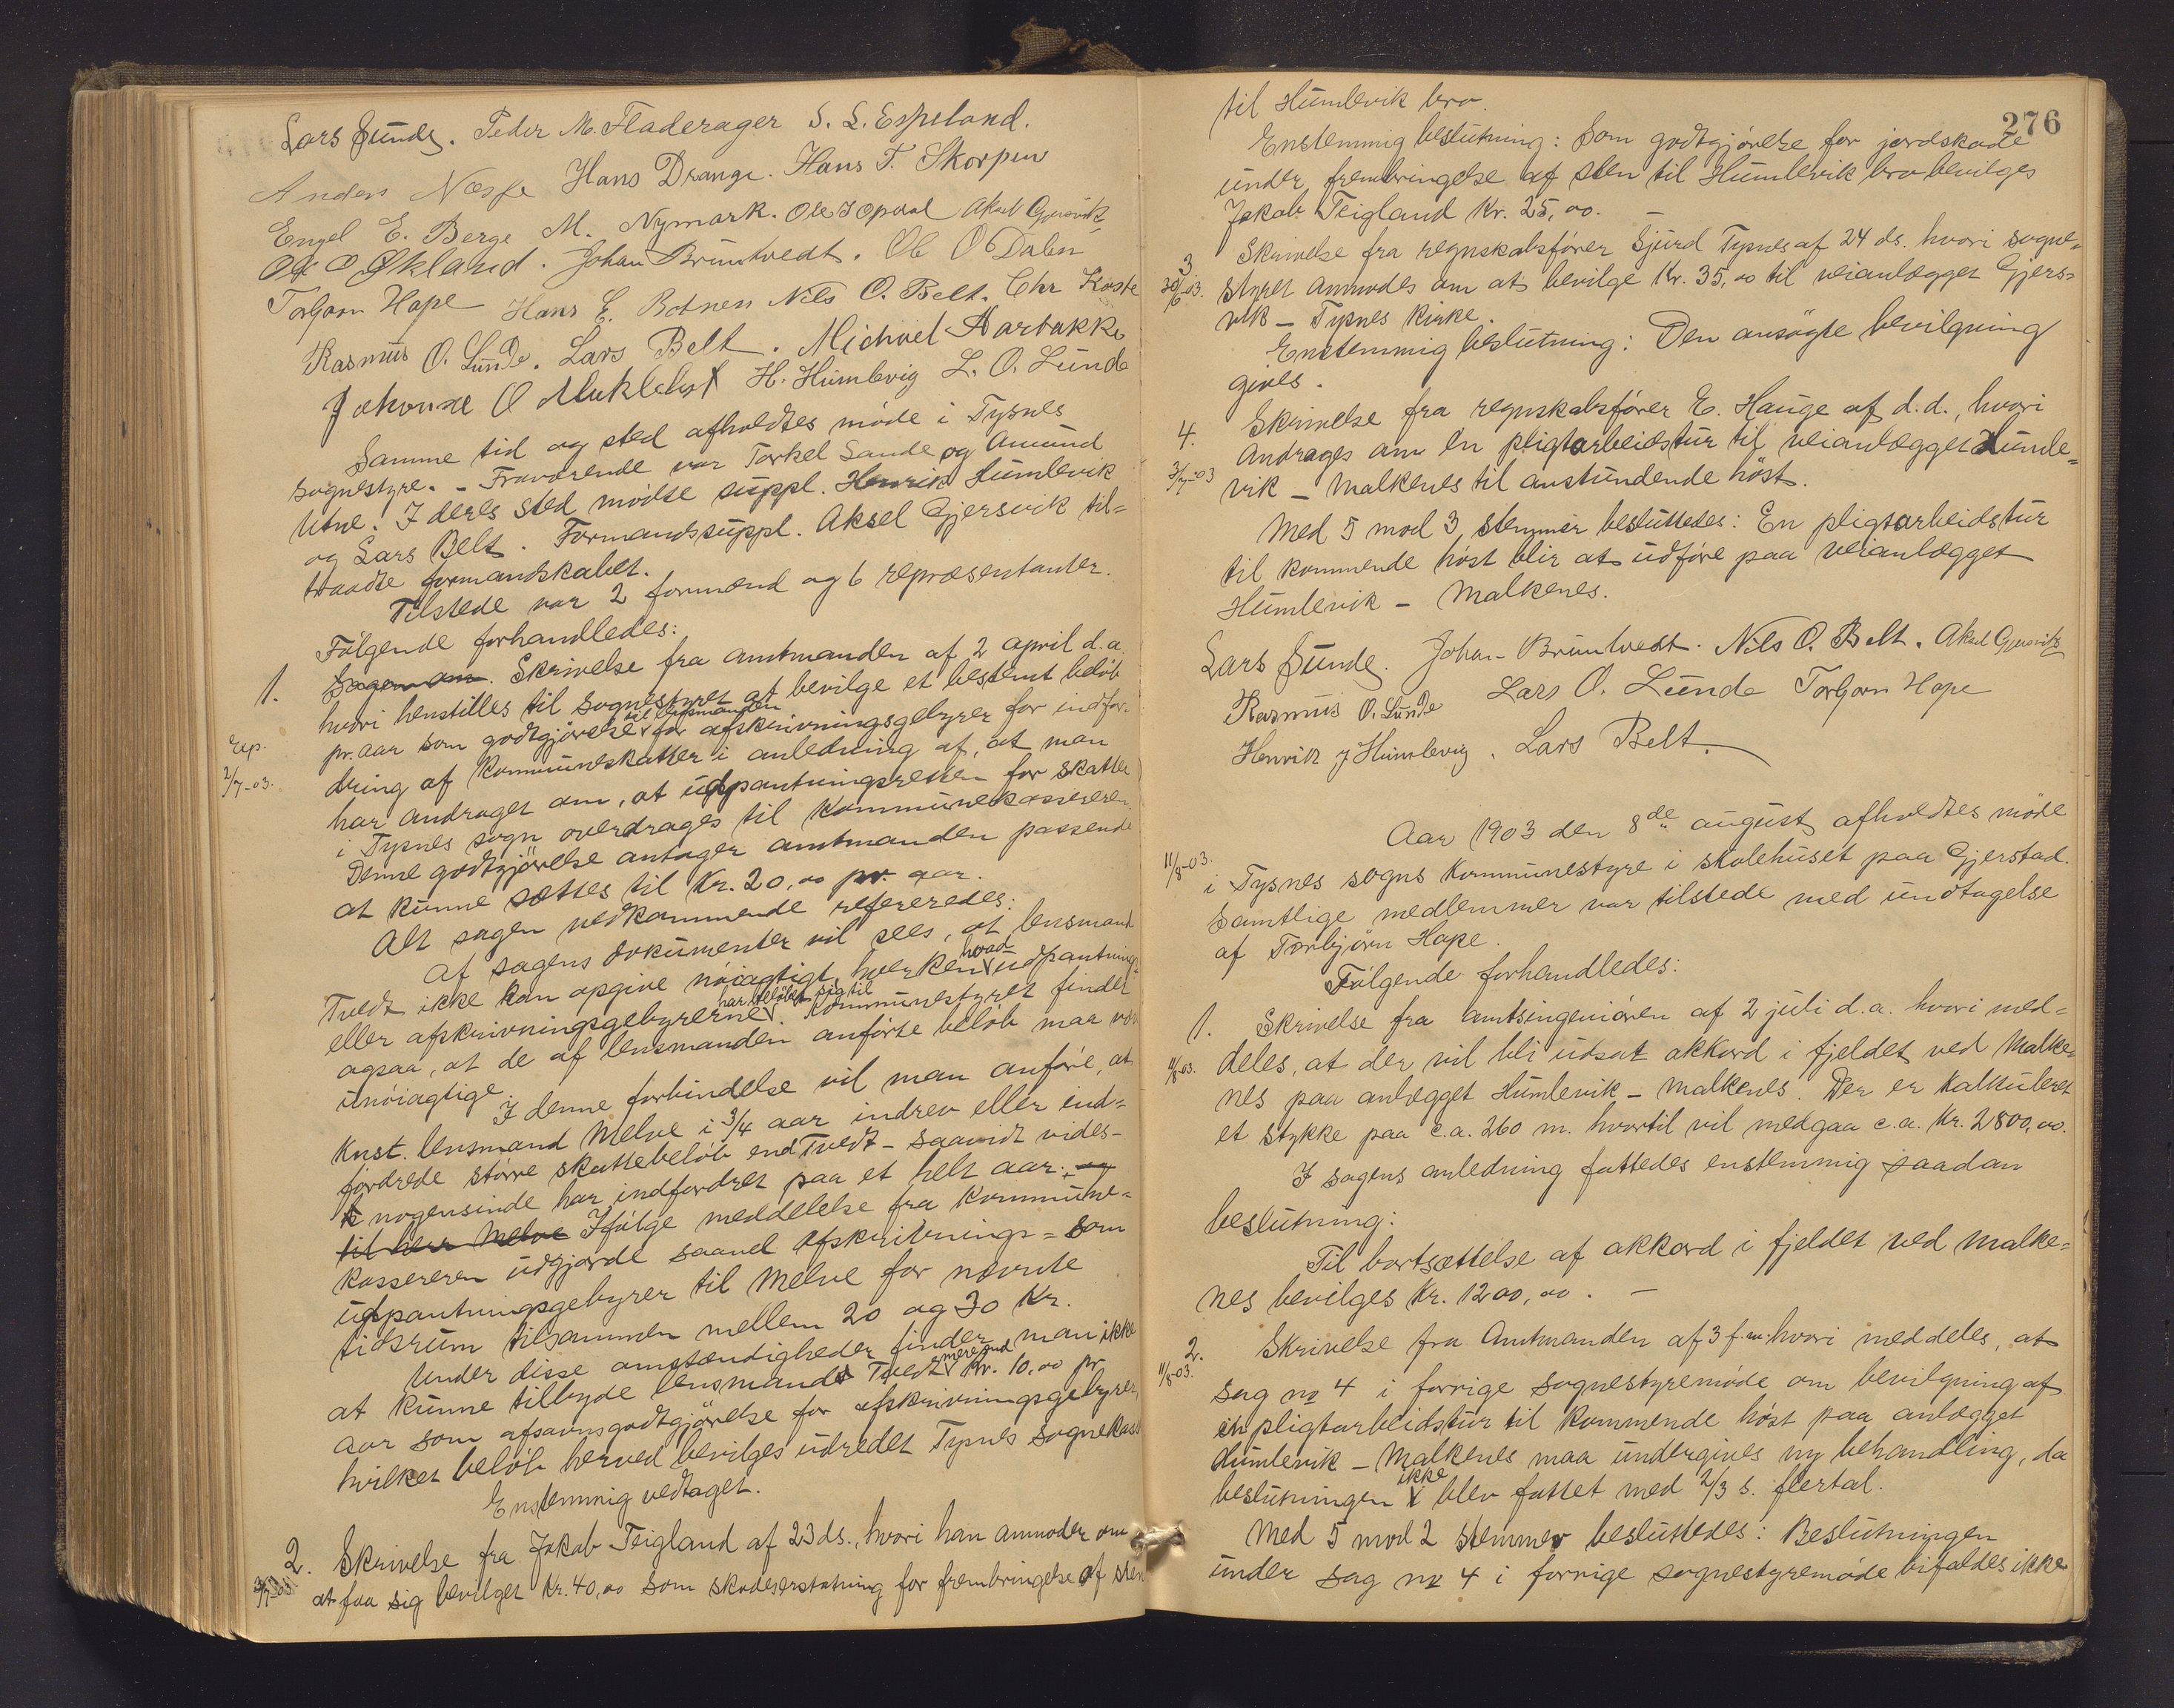 Lars Sunde. Peder M. Fladerager S. L. Espeland.
Anders Næsse Hans Drange. Hans T. Skorpen
Engel E. Berge M. Nymark. Ole J Opdal Aksel Gjersvik
O O Økland. Johan Bruntvedt. Ole O Dalen
Torbjørn Hope Hans E. Botnen Nils O. Belt. Chr Koste
Rasmus O. Lunde. Lars Belt. Michael Aarbakke
Johannes O Myklebust H. Humlevig L. O. Lunde
Samme tid og sted afholdtes møde i Tysnes
sognestyre. - Fraværende var Torkel Sande og Amund
Utne. I deres sted mødte suppl. Henrik Humlevik
og Lars Belt. Formandssuppl. Aksel Gjersvik til=
traadte formandskabet.
Tilstede var 2 formænd og 6 repræsentanter.
Følgende forhandledes:
1. Sagen om. Skrivelse fra amtmanden af 2 april d.a.
hvori henstilles til sognestyret at bevilge et bestemt beløb
pr. aar som godtgjørelse til lensmanden for afskrivningsgebyrer for indfor-
Exp. 2/7-03. dring af kommuneskatter i anledning af, at man
har andraget om, at udpantningsretten for skatter
i Tysnes sogn overdrages til kommunekassereren.
Denne godtgjørelse antager amtmanden passende
at kunne sættes til Kr. 20,00 pr. aar.
Alt sagen vedkommende refereredes:
Af sagens dokumenter vil sees, at lensmand
Tvedt ikke kan opgive nøiagtigt, hverken hvad udpantnings
eller afskrivningsgebyrerne har beløbet sig til. Kommunestyret finder
ogsaa, at de af lensmanden anførte beløb maa være
unøiagtige.
I denne forbindelse vil man anføre, at
Knst. lensmand Melve i 3/4 aar indrev eller ind=
fordrede større skattebeløb end Tvedt - saavidt vides -
nogensinde har indfordret paa et helt aar. og
til herr Melve Ifølge meddelelse fra kommune=
kassereren udgjorde saavel afskrivnings= som
udpantningsgebyrer til Melve for nævnte
tidsrum tilsammen mellem 20 og 30 Kr.
Under disse omstændigheder finder man ikke
at kunne tilbyde lensmand Tvedt mere end Kr. 10,00 pr.
aar som afsavnsgodtgjørelse for afskrivningsgebyrer,
hvilket beløb herved bevilges udredet Tysnes sognekasse
Enstemmig vedtaget.
2. Skrivelse fra Jakob Teigland af 23 ds., hvori han anmoder om
3/7-03. at faa sig bevilget Kr. 40,00 som skadeserstatning for frembringelse af sten
276
til Humlevik bro.
Enstemmig beslutning: Som godtgjørelse for jordskade
under frembringelse af sten til Humlevik bro bevilges
Jakob Teigland Kr. 25,00. -
3 Skrivelse fra regnskabsfører Sjurd Tysnes af 24 ds. hvori sogne=
30/6-03. styret anmodes om at bevilge Kr. 35,00 til veianlægget Gjers=
vik - Tysnes kirke.
Enstemmig beslutning: Den ansøgte bevilgning
gives.
4. Skrivelse fra regnskabsfører E. Hauge af d.d., hvori
andrages om en pligtarbeidstur til veianlægget Humle=
3/7-03 vik - Malkenes til anstundende høst.
Med 5 mod 3 stemmer besluttedes: En pligtarbeidstur
til kommende høst blir at udføre paa veianlægget
Humlevik - Malkenes.
Lars Sunde. Johan Bruntvedt. Nils O. Belt. Aksel Gjersvik
Rasmus O. Lunde Lars O. Lunde Torbjørn Hope
Henrik J Humlevig. Lars Belt.
Aar 1903 den 8de august afholdtes møde
11/8-03. i Tysnes sogns kommunestyre i skolehuset paa Gjerstad.
Samtlige medlemmer var tilstede med undtagelse
af Torbjørn Hope.
Følgende forhandledes:
1. Skrivelse fra amtsingeniøren af 2 juli d.a. hvori med=
11/8-03. deles, at der vil bli udsat akkord i fjeldet ved Malke=
nes paa anlægget Humlevik - Malkenes. Der er kalkuleret
et stykke paa c.a. 260 m. hvortil vil medgaa c.a. Kr. 2800,00.
I sagens anledning fattedes enstemmig saadan
beslutning:
Til bortsættelse af akkord i fjeldet ved Malke=
nes bevilges Kr. 1200,00. -
2. Skrivelse fra Amtmanden af 3 f.m. hvori meddeles, at
11/8-03. sag no 4 i forrige sognestyremøde om bevilgning af
en pligtarbeidstur til kommende høst paa anlægget
Humlevik - Malkenes maa undergives ny behandling, da
beslutningen ikke blev fattet med 2/3 s. flertal.
Med 5 mod 2 stemmer besluttedes: Beslutningen
under sag no 4 i forrige sognestyremøde bifaldes ikke